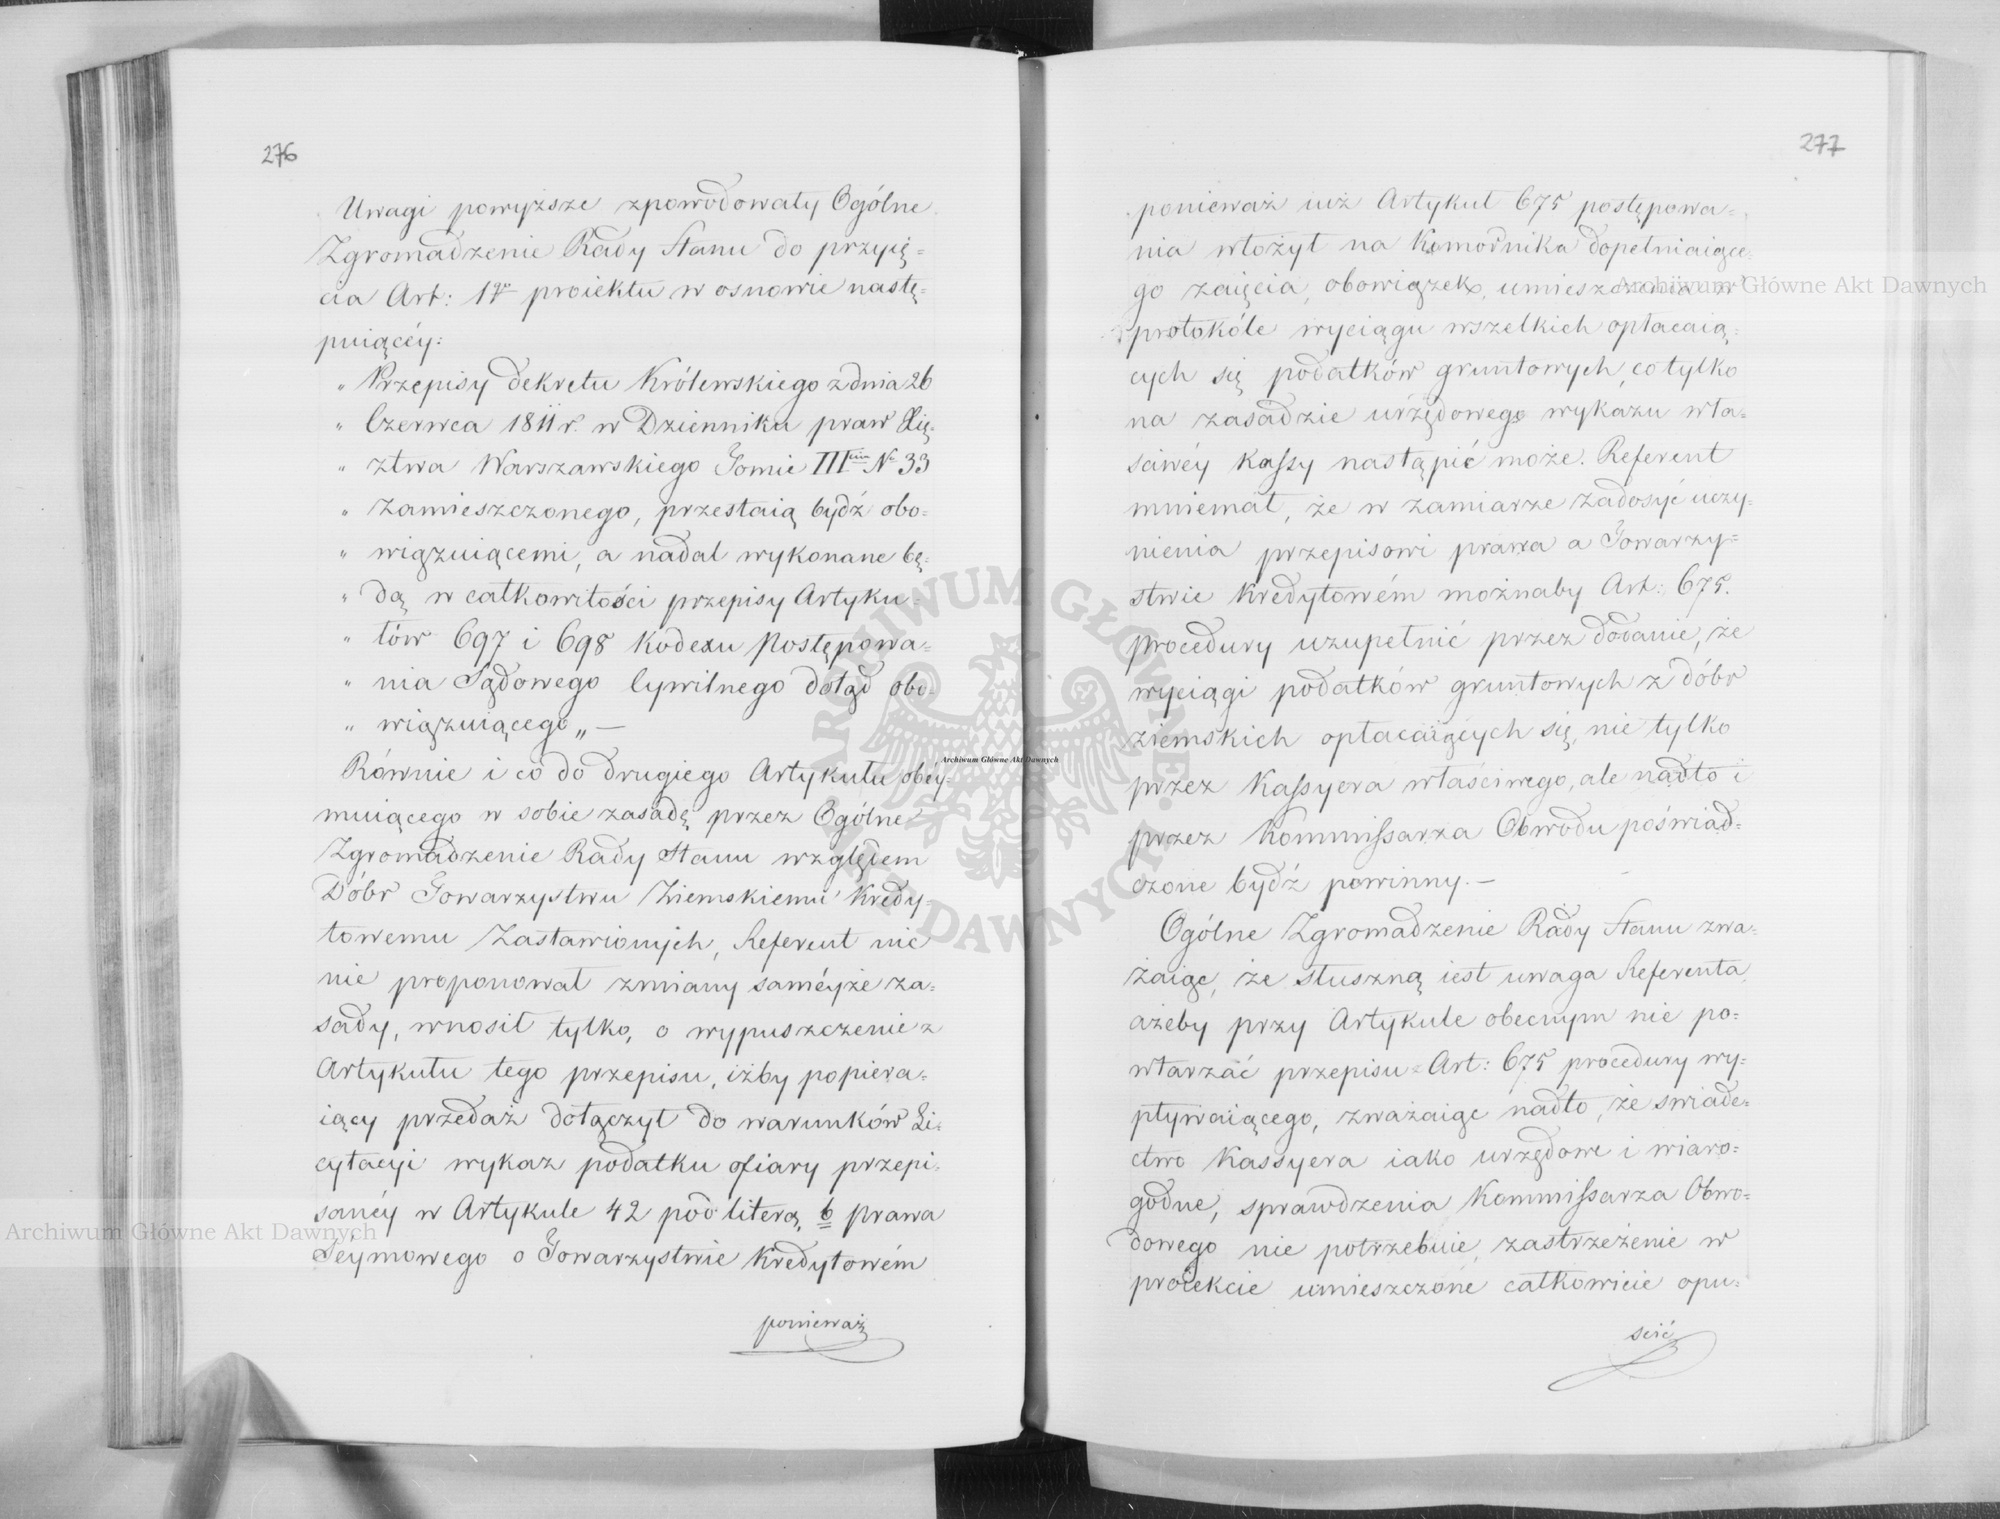 276
Uwagi powyższe spowodowały Ogólne
Zgromadzenie Rady Stanu do przyię-
cia Art: 1go proiektu w osnowie nastę-
puiącéy:
„ Przepisy dekretu Królewskiego z dnia 26
„ Czerwca 1811 r. w Dzienniku praw Xię-
„ ztwa Warszawskiego Tomie IIIcim No 33
„ zamieszczonego, przestaią bydź obo-
„ wiązuiącemi, a nadal wykonane bę-
„ dą w całkowitości przepisy Artyku-
„ łów 697 i 698 Kodexu Postępowa-
„ nia Sądowego Cywilnego dotąd obo-
„ wiązuiącego „ —
Równie i co do drugiego Artykułu obéy-
muiącego w sobie zasadę przez Ogólne
Zgromadzenie Rady Stanu względem
Dóbr Towarzystwu Ziemskiemu Kredy-
towemu Zastawionych, Referent nic
nie proponował zmiany saméyże za-
sady, wnosił tylko, o wypuszczenie z
Artykułu tego przepisu, iżby popiera-
iący przedaż dołączył do warunków Li-
cytacyi wykaz podatku ofiary przepi-
sanéy w Artykule 42 pod literą b prawa
Seymowego o Towarzystwie Kredytowém
ponieważ
277
ponieważ iuż Artykuł 675 postępowa-
nia włożył na Komornika dopełniaiące-
go zaięcia, obowiązek, umieszczenia w
protokóle wyciągu wszelkich opłacaią-
cych się podatków gruntowych, co tylko
na zasadzie urzędowego wykazu wła-
sciwéy Kassy nastąpić może. Referent
mniemał, że w zamiarze zadosyć uczy-
nienia przepisowi prawa a Towarzy-
stwie Kredytowém możnaby Art: 675.
procedury uzupełnić przez dodanie, że
wyciągi podatków gruntowych z dóbr
ziemskich opłacaiących się, nie tylko
przez Kassyera właściwego, ale nadto i
przez Kommissarza Obwodu poświad-
czone bydź powinny. —
Ogólne Zgromadzenie Rady Stanu zwa-
żaiąc, że słuszną iest uwaga Referenta,
ażeby przy Artykule obecnym nie po-
wtarzać przepisu z Art: 675 procedury wy-
pływaiącego, zważaiąc nadto, że swiade-
ctwo Kassyera iako urzędowe i wiaro-
godne, sprawdzenia Kommissarza Obwo-
dowego nie potrzebuie, zastrzeżenie w
proiekcie umieszczone całkowicie opu-
scić
Archiwum Główne Akt Dawnych
Archiwum Główne Akt Dawnych
Archiwum Główne Akt Dawnych
ARCHIWUM GŁÓWNE AKT DAWNYCH